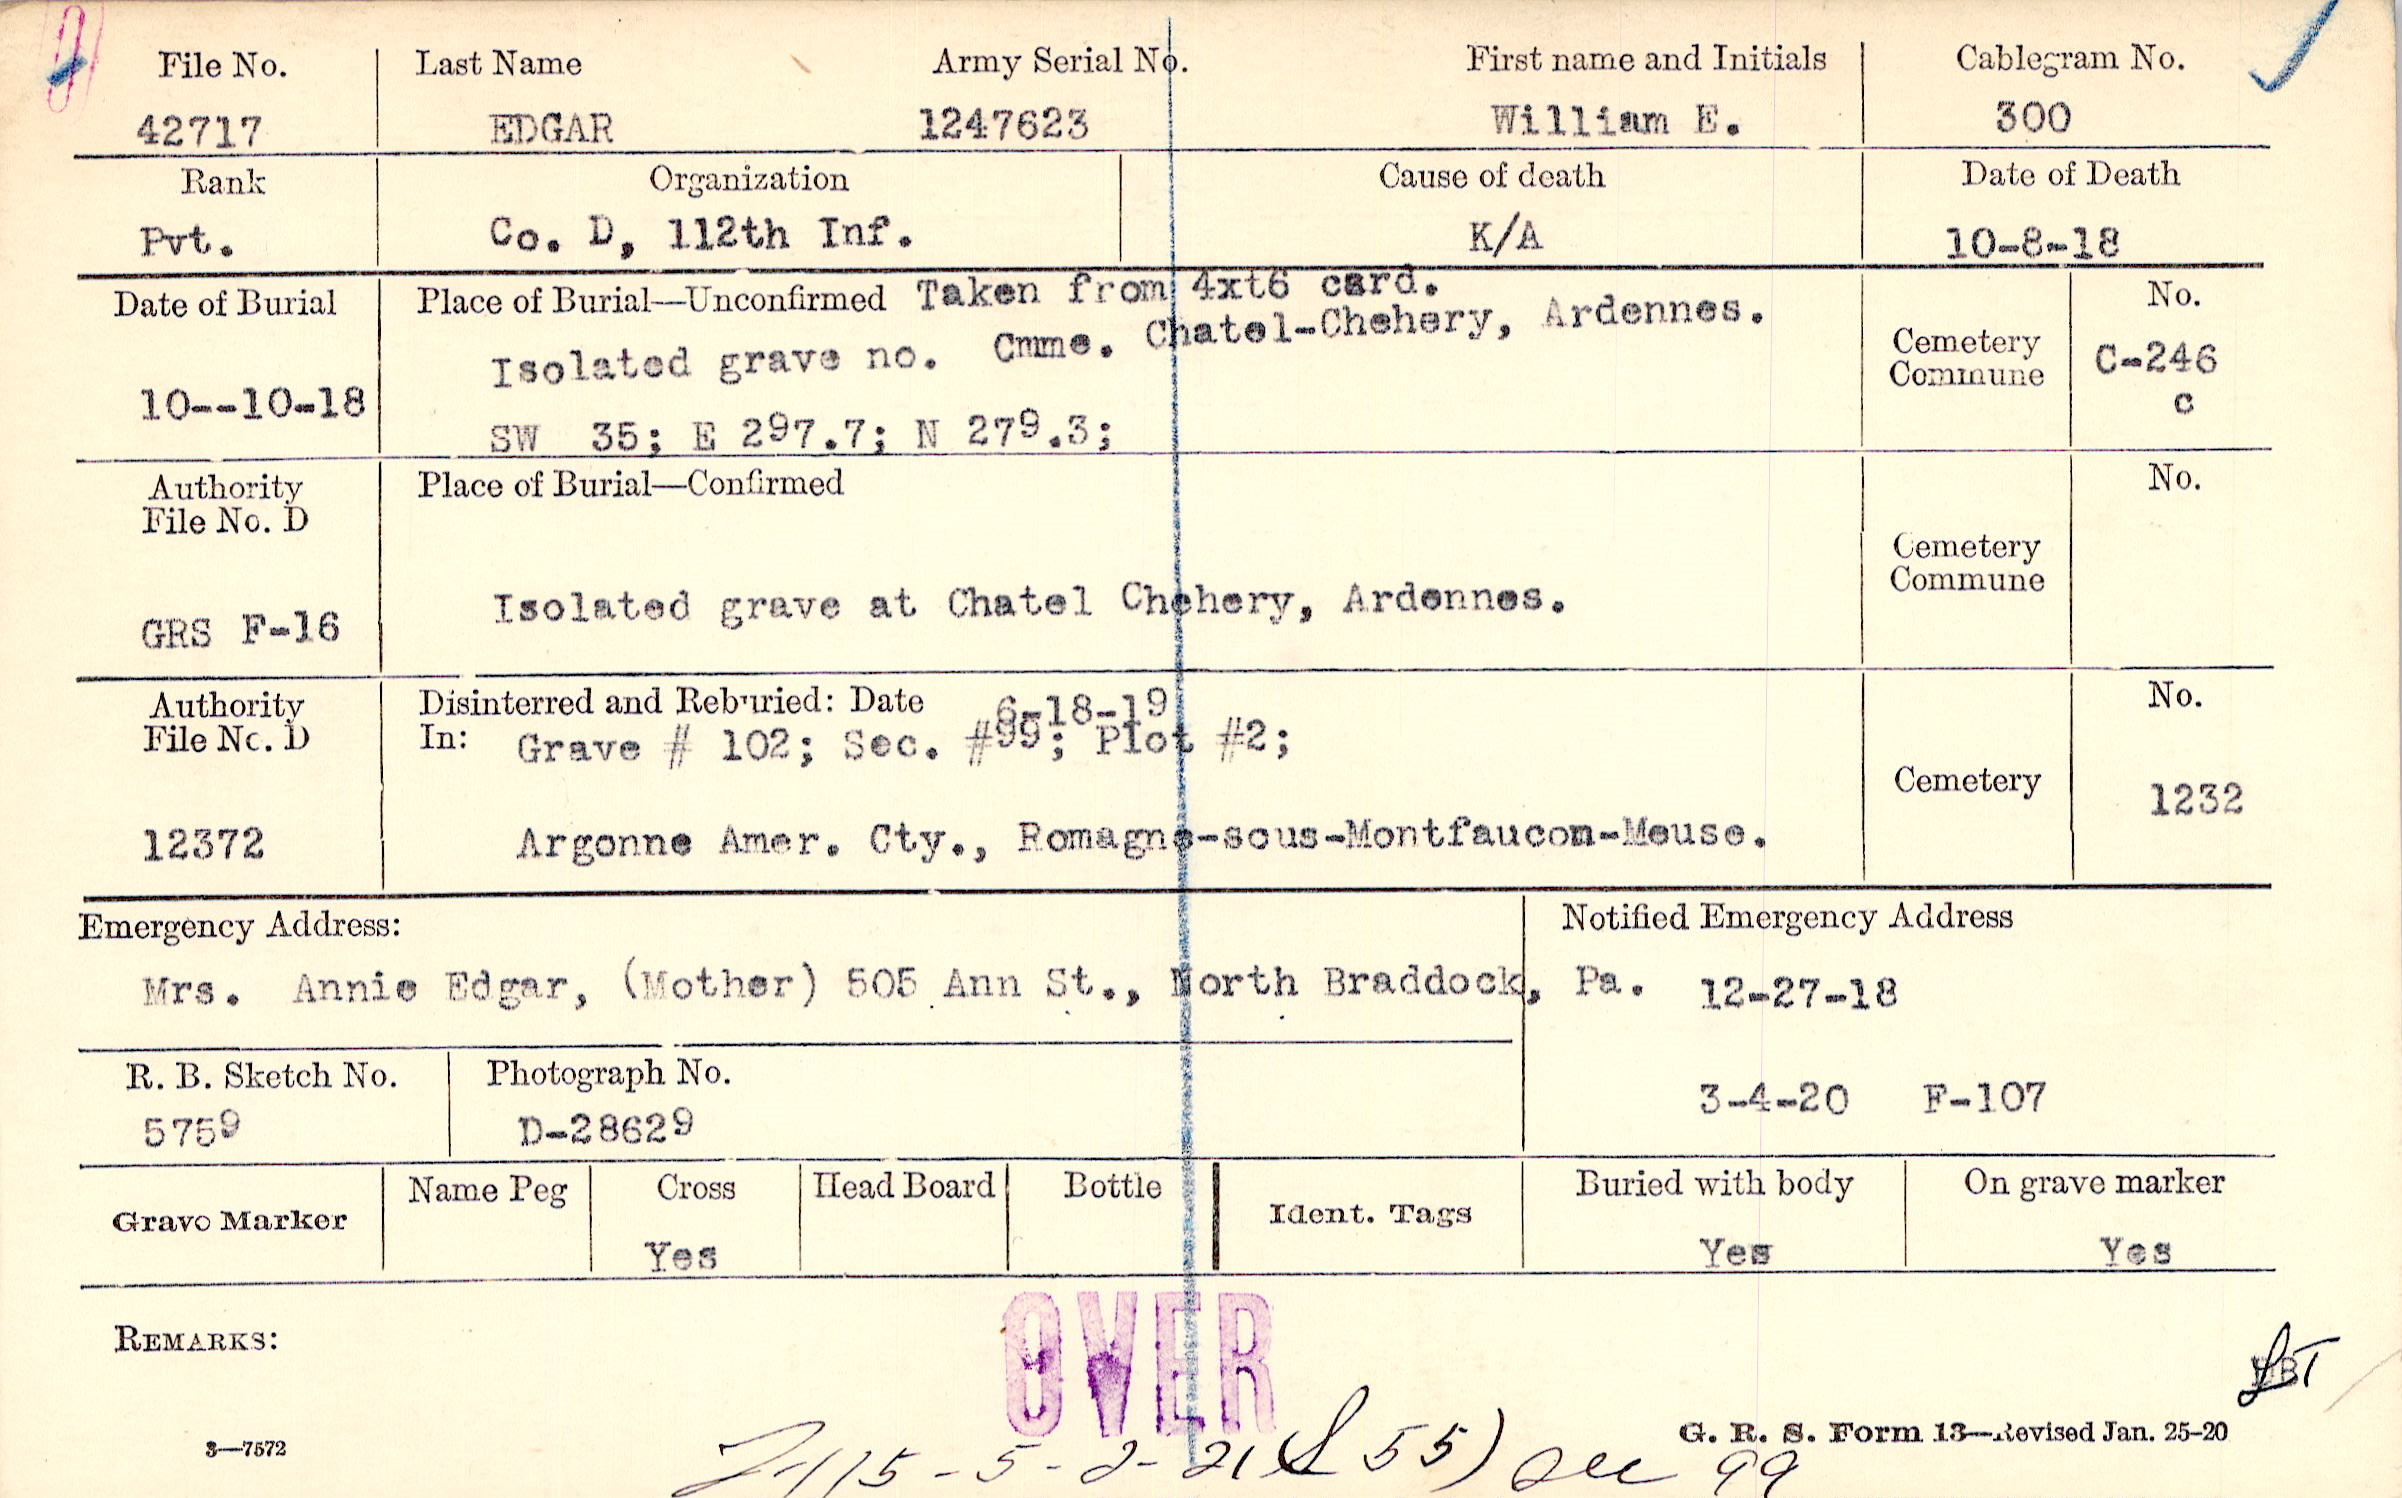 File No. Last Name Army Serial No. First name and Initials Cablegram No.
42717 EDGAR 1247623 William E. 300
Rank Organization Cause of death Date of Death
Pvt. Co. D, 112th Inf. K/A 10-8-18
Date of Burial Place of Burial—Unconfirmed Taken from 4xt6 card. No.
Isolated grave no. Cmme. Chatel-Chehery, Ardennes. Cemetery Commune C-246
10--10-18 c
SW 35; E 297.7; N 279.3;
Authority Place of Burial—Confirmed No.
File No. D
Cemetery
Commune
GRS F-16 Isolated grave at Chatel Chehery, Ardennes.
Authority Disinterred and Reburied: Date 6-18-19 No.
File No. D In: Grave # 102; Sec. #99; Plot #2;
Cemetery 1232
12372 Argonne Amer. Cty., Romagne-sous-Montfaucon-Meuse.
Emergency Address: Notified Emergency Address
Mrs. Annie Edgar, (Mother) 505 Ann St., North Braddock, Pa. 12-27-18
R. B. Sketch No. Photograph No.
5759 D-28629 3-4-20 F-107
Grave Marker Name Peg Cross Head Board Bottle Ident. Tags Buried with body On grave marker
Yes Yes Yes
OVER
REMARKS:
G. R. S. Form 13—Revised Jan. 25-20
3—7572
5-2-21 (S 55) Sec 99